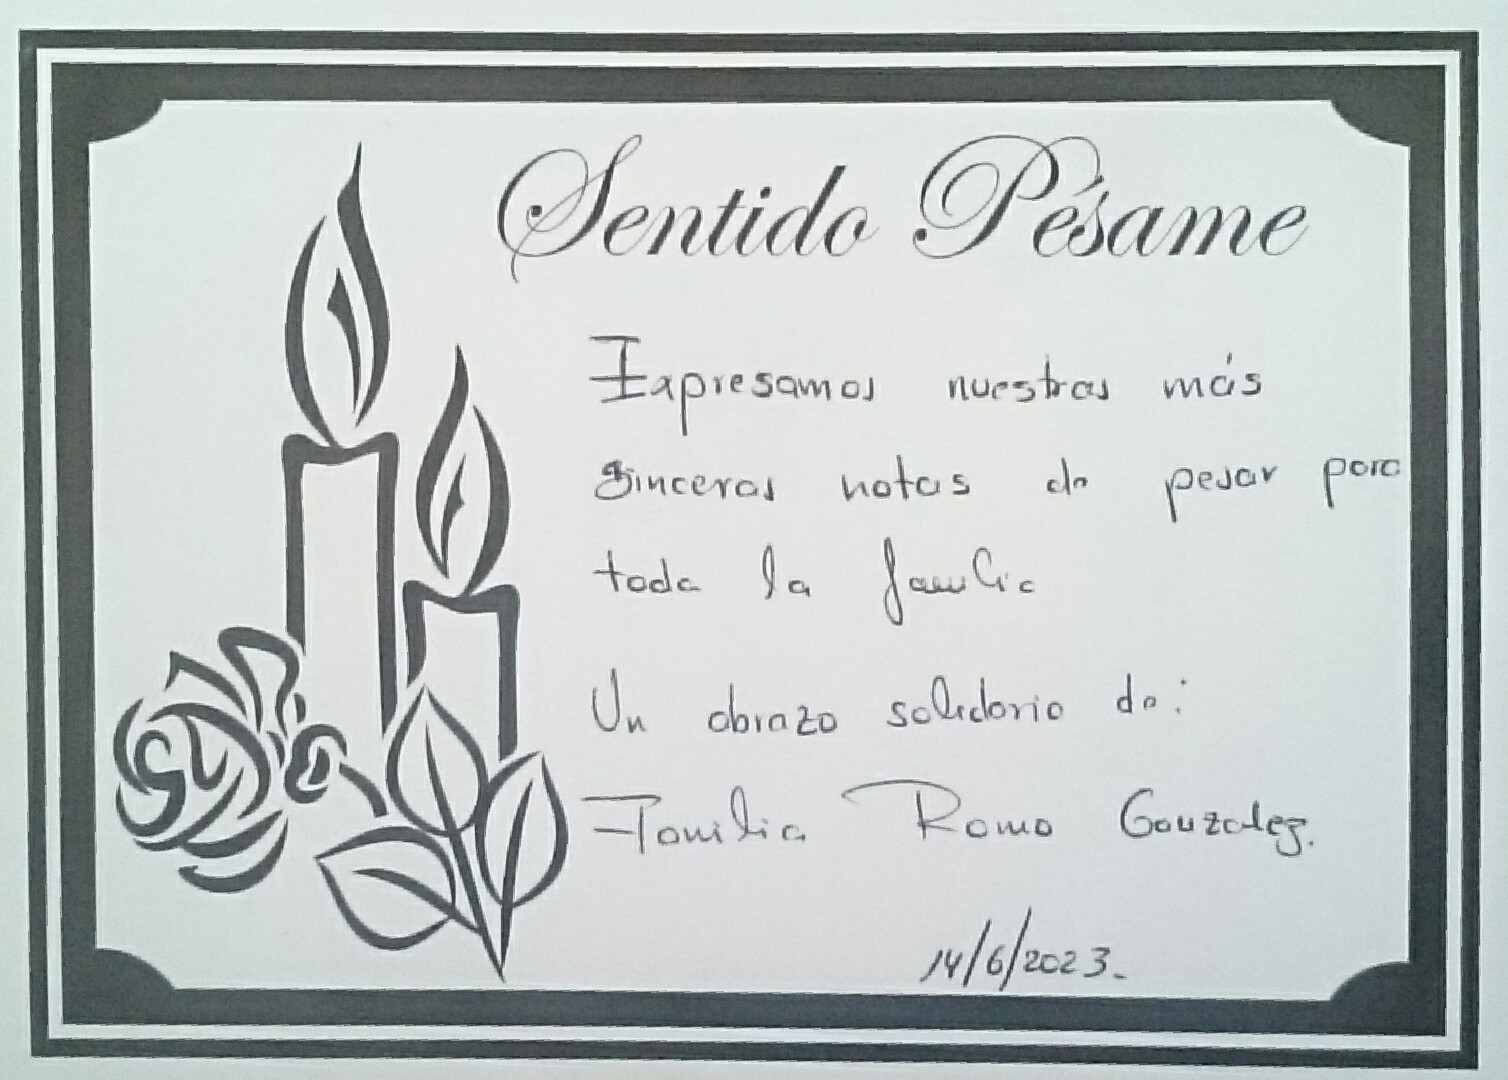 Sentido Pésame
Expresamos nuestras más
sinceras notas de pesar para
toda la familia
Un abrazo solidario de:
Familia Romo Gonzalez.
14/6/2023.